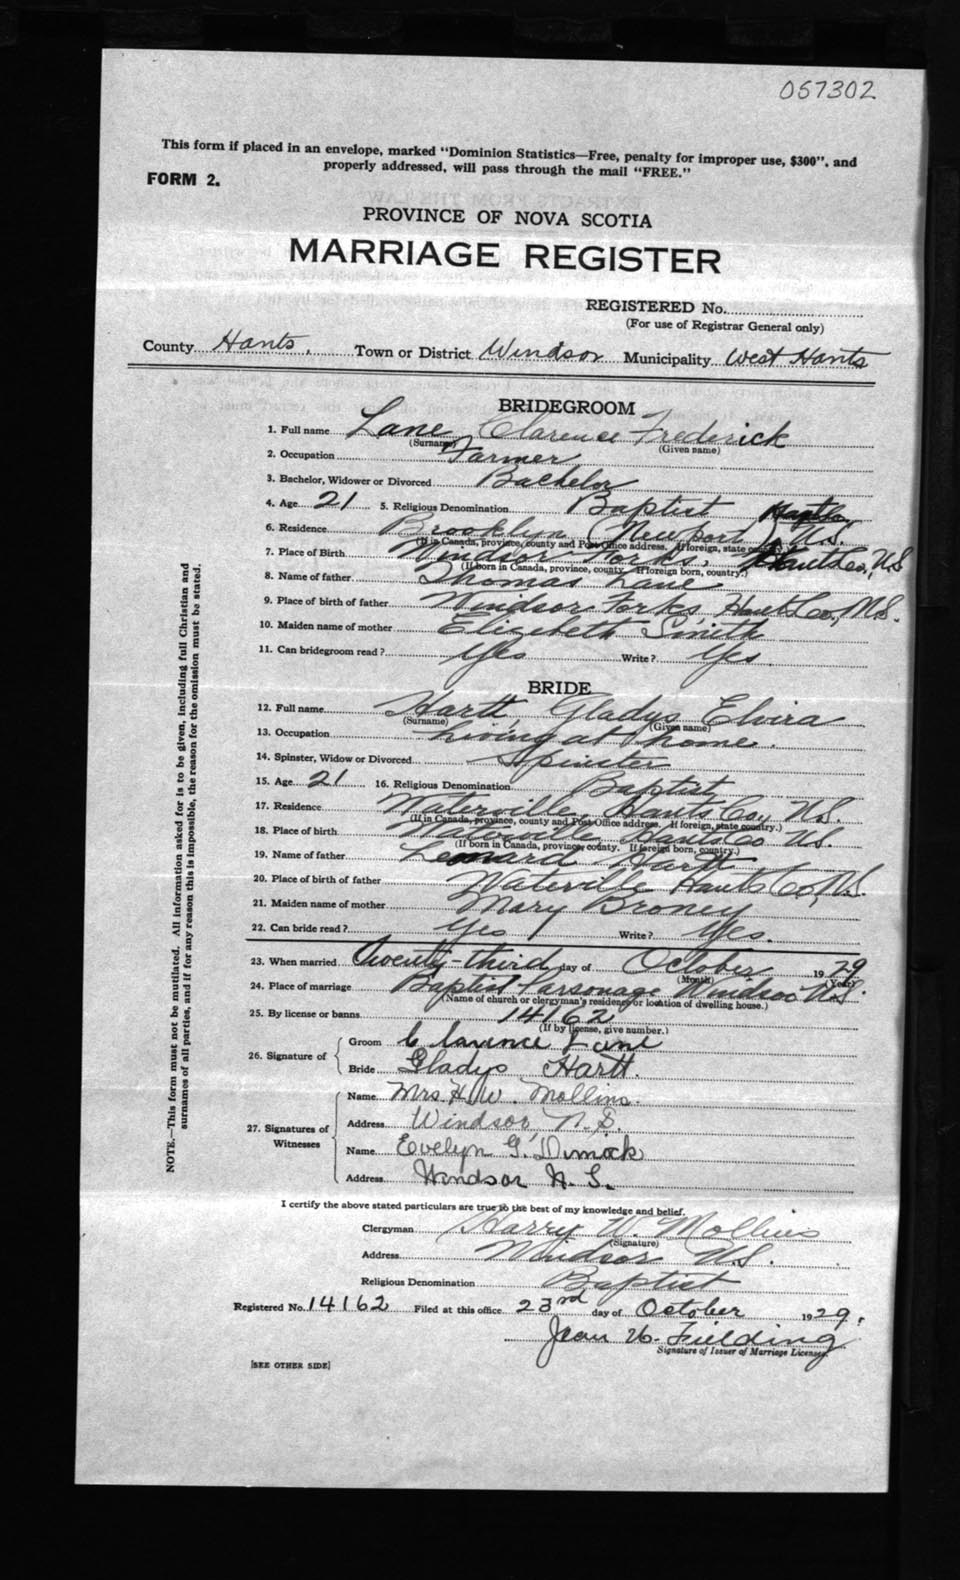 057302
This form if placed in an envelope, marked "Dominion Statistics—Free, penalty for improper use, $300", and
properly addressed, will pass through the mail "FREE."
FORM 2.
PROVINCE OF NOVA SCOTIA
MARRIAGE REGISTER
REGISTERED No.
(For use of Registrar General only)
County Hants, Town or District Windsor Municipality West Hants
BRIDEGROOM
1. Full name Lane Clarence Frederick
(Surname) (Given name)
2. Occupation Farmer
3. Bachelor, Widower or Divorced Bachelor
4. Age 21 5. Religious Denomination Baptist
6. Residence Brooklyn (Newport) N.S.
(If in Canada, province, county and Post Office address. If foreign, state country.)
7. Place of Birth Windsor Forks, Hants Co., N.S
(If born in Canada, province, county. If foreign born, country.)
8. Name of father Thomas Lane
9. Place of birth of father Windsor Forks, Hants Co., N.S.
10. Maiden name of mother Elizabeth Smith
11. Can bridegroom read? Yes Write? Yes.
BRIDE
12. Full name Hartt Gladys Elvira
(Surname) (Given name)
13. Occupation Living at home.
14. Spinster, Widow or Divorced Spinster
15. Age 21 16. Religious Denomination Baptist
17. Residence Waterville, Hants Co., N.S.
(If in Canada, province, county and Post Office address. If foreign, state country.)
18. Place of birth Waterville Hants Co N.S.
(If born in Canada, province, county. If foreign born, country.)
19. Name of father Leonard Hartt
20. Place of birth of father Waterville Hants Co, N.S.
21. Maiden name of mother Mary Broney
22. Can bride read? Yes Write? Yes.
23. When married Twenty-third day of October 1929
(Month) (Year)
24. Place of marriage Baptist Parsonage Windsor N.S.
(Name of church or clergyman's residence or location of dwelling house.)
25. By license or banns 14162
(If by license, give number.)
26. Signature of
Groom Clarence Lane
Bride Gladys Hartt.
27. Signatures of Witnesses
Name Mrs. H. W. Mollins.
Address Windsor, N.S.
Name Evelyn G. Dimock
Address Windsor N.S.
I certify the above stated particulars are true to the best of my knowledge and belief.
Clergyman Harry W. Mollins
(Signature)
Address Windsor N.S.
Religious Denomination Baptist
Registered No. 14162 Filed at this office 23rd day of October 1929.
Jean W. Fielding
Signature of Issuer of Marriage Licenses
[SEE OTHER SIDE]
NOTE.—This form must not be mutilated. All information asked for is to be given, including full Christian and
surnames of all parties, and if for any reason this is impossible, the reason for the omission must be stated.